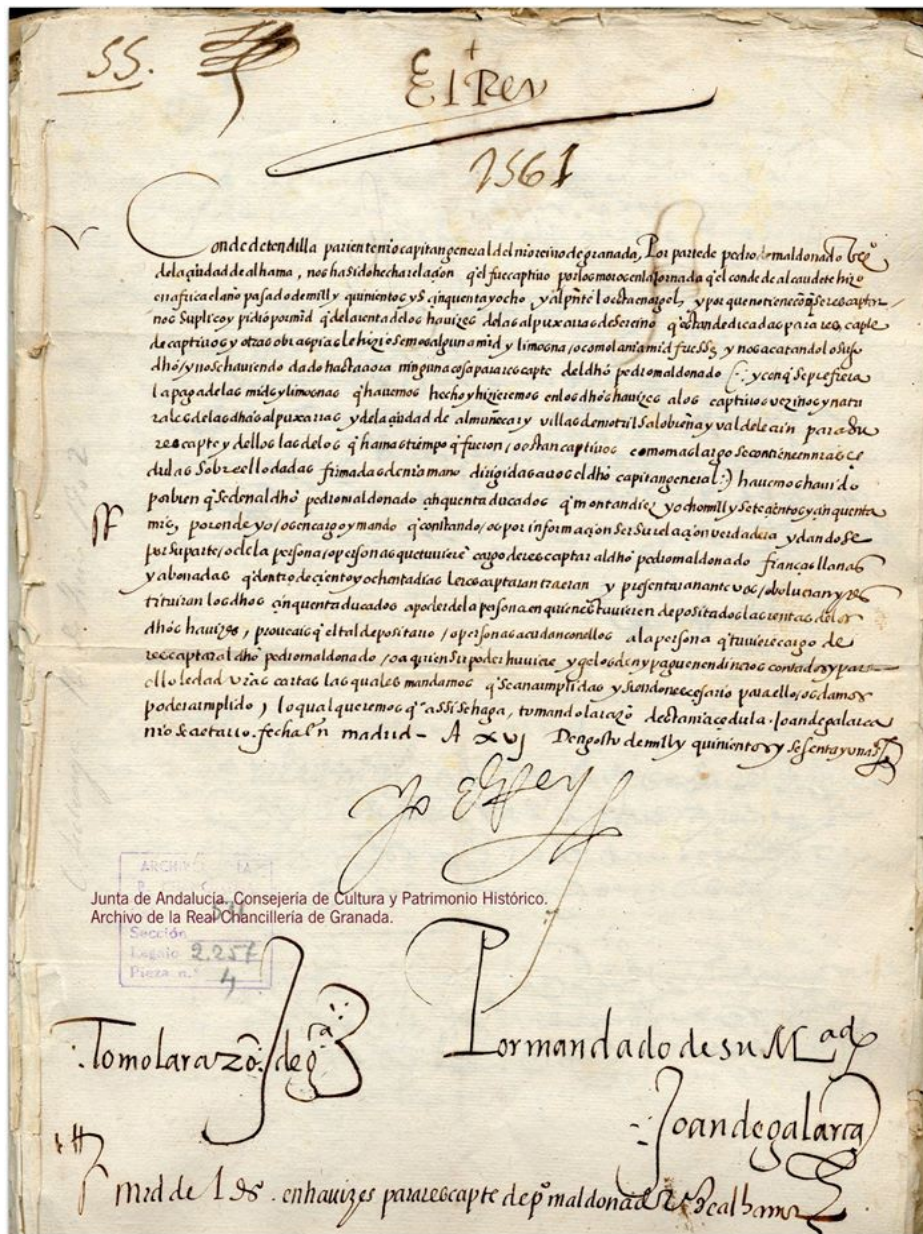 55.
+
El Rey
1561
Conde de tendilla pariente nro capitan general del nro reino de granada, Por parte de pedro de maldonado vzo
de la ciudad de alhama, nos ha sido hecha relacion q̃l fue captivo por los moros en la Jornada q̃l conde de alcaudete hizo
en africa el año pasado de mill y quinientos y cinquenta y ocho, y al pñte lo esta en argel, y por que no tiene con q̃ se rescaptar
nos suplico y pidio por md q̃ de la renta de los havizes de las alpuxarras dese reino q̃ estan dedicadas para rescapte
de captivos y otras obras pias le hiziesemos alguna md y limosna / o como la nra md fuesse, y nos acatando lo suso
dho / y no se haviendo dado hasta aora ninguna cosa para rescapte del dho pedro maldonado (:- y con q̃ se prefiera
la paga de las mds y limosnas q̃ havemos hecho y hizieremos en los dhos havizes a los captivos vezinos y natu
rales de las dhas alpuxarras y de la ciudad de almuñecar y villas de motril salobreña y val de lecrin para su
rescapte y dellos las de los q̃ ha mas tiempo q̃ fueron / o estan captivos como mas largo se contiene en nras ce
dulas sobre ello dadas firmadas de nra mano dirigidas a vos el dho capitan general :) havemos havido
por bien q̃ se den al dho pedro maldonado cinquenta ducados q̃ montan diez y ocho mill y setecientos y cinquenta
mrs, por ende yo / os encargo y mando q̃ constando / os por informacion ser su relacion verdadera y dando se
por su parte / o de la persona / o personas que tuviere cargo de rescaptar al dho pedro maldonado fianças llanas
y abonadas q̃ dentro de ciento y ochenta dias le rescaptaran traeran y presentaran ante vos / o bolveran y res
tituiran los dhos cinquenta ducados a poder de la persona en quien estuvieren depositados las rentas de los
dhos havizes, proveais q̃ el tal depositario / o personas acudan con ellos a la persona q̃ tuviere cargo de
rescaptar al dho pedro maldonado / o a quien su poder huviere y ge los den y paguen en dineros contados y para
ello le dad vras cartas las quales mandamos q̃ sean cumplidas y siendo nescesario para ello / os damos
poder cumplido, lo qual queremos q̃ assi se haga, tomando la razõ desta nra cedula Joan de galarca
nro secretario. fecha en madrid - A xvj De agosto de mill y quinientos y sesenta y un as
yo el Rey
ARCHIVO
Junta de Andalucía. Consejería de Cultura y Patrimonio Histórico.
Archivo de la Real Chancillería de Granada.
Sección
Legajo 2.257
Pieza n.º 4
Tomo la razõ de g.ça
Por mandado de su Mad
Joan de galarca
md de l ds. en havizes para rescapte de pº maldonado vzº de alhama